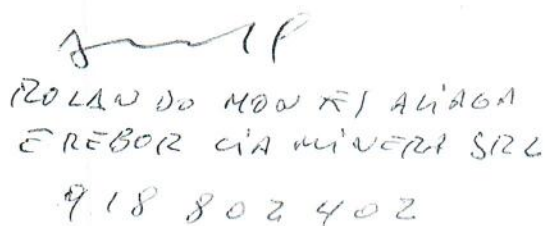 ROLANDO MONTES ALIAGA
EREBOR CIA MINERA SRL
918 802 402